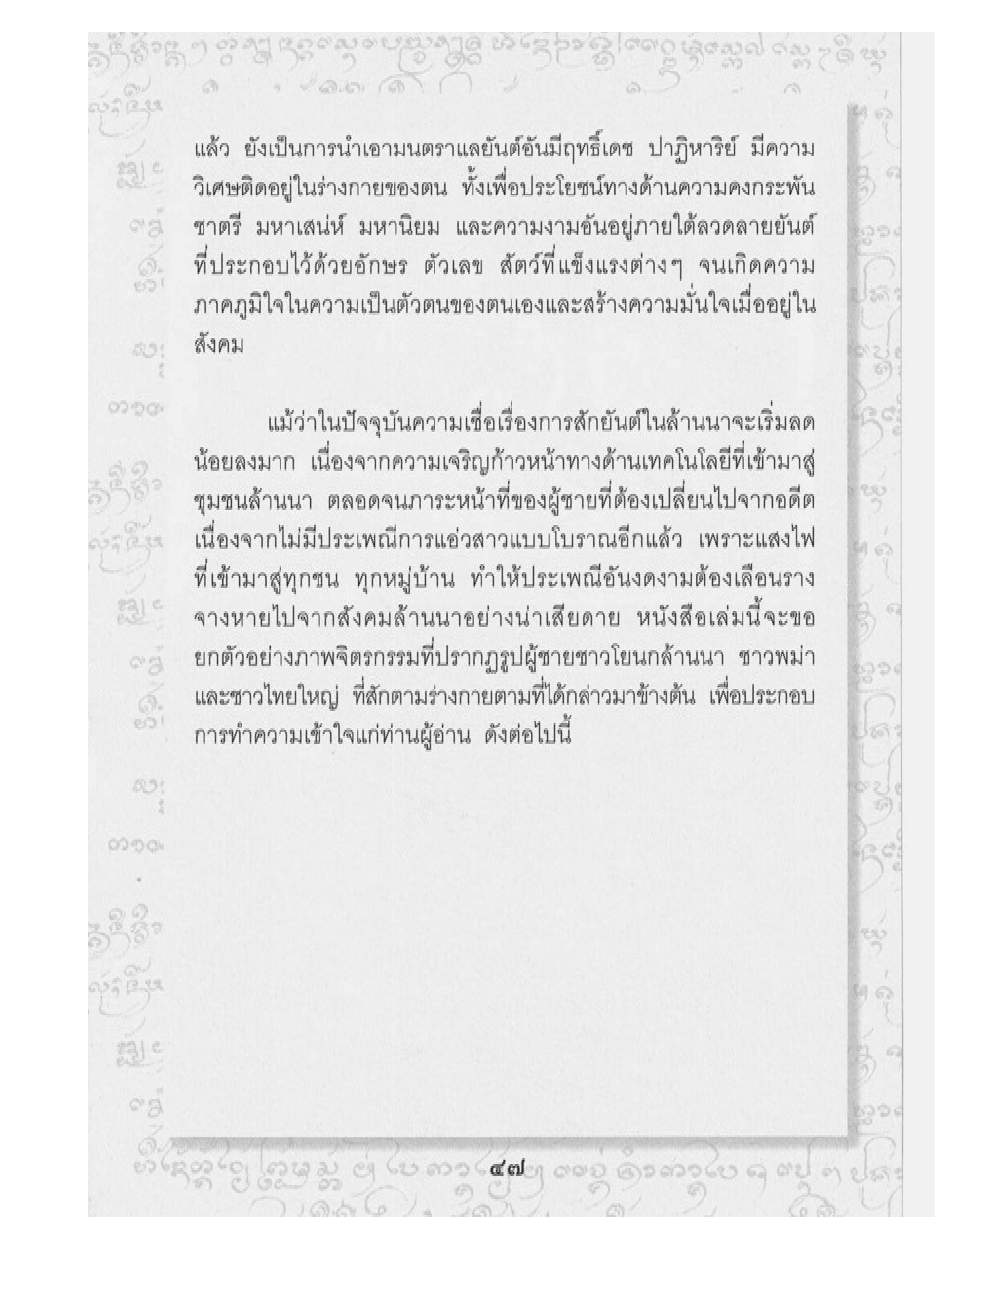 แล้ว ยังเป็นการนำเอามนตราแลยันต์อันมีฤทธิ์เดช ปาฏิหาริย์ มีความ
วิเศษติดอยู่ในร่างกายของตน ทั้งเพื่อประโยชน์ทางด้านความคงกระพัน
ชาตรี มหาเสน่ห์ มหานิยม และความงามอันอยู่ภายใต้ลวดลายยันต์
ที่ประกอบไว้ด้วยอักษร ตัวเลข สัตว์ที่แข็งแรงต่างๆ จนเกิดความ
ภาคภูมิใจในความเป็นตัวตนของตนเองและสร้างความมั่นใจเมื่ออยู่ใน
สังคม
แม้ว่าในปัจจุบันความเชื่อเรื่องการสักยันต์ในล้านนาจะเริ่มลด
น้อยลงมาก เนื่องจากความเจริญก้าวหน้าทางด้านเทคโนโลยีที่เข้ามาสู่
ชุมชนล้านนา ตลอดจนภาระหน้าที่ของผู้ชายที่ต้องเปลี่ยนไปจากอดีต
เนื่องจากไม่มีประเพณีการแอ่วสาวแบบโบราณอีกแล้ว เพราะแสงไฟ
ที่เข้ามาสู่ทุกชน ทุกหมู่บ้าน ทำให้ประเพณีอันงดงามต้องเลือนราง
จางหายไปจากสังคมล้านนาอย่างน่าเสียดาย หนังสือเล่มนี้จะขอ
ยกตัวอย่างภาพจิตรกรรมที่ปรากฏรูปผู้ชายชาวโยนกล้านนา ชาวพม่า
และชาวไทยใหญ่ ที่สักตามร่างกายตามที่ได้กล่าวมาข้างต้น เพื่อประกอบ
การทำความเข้าใจแก่ท่านผู้อ่าน ดังต่อไปนี้
๔๗